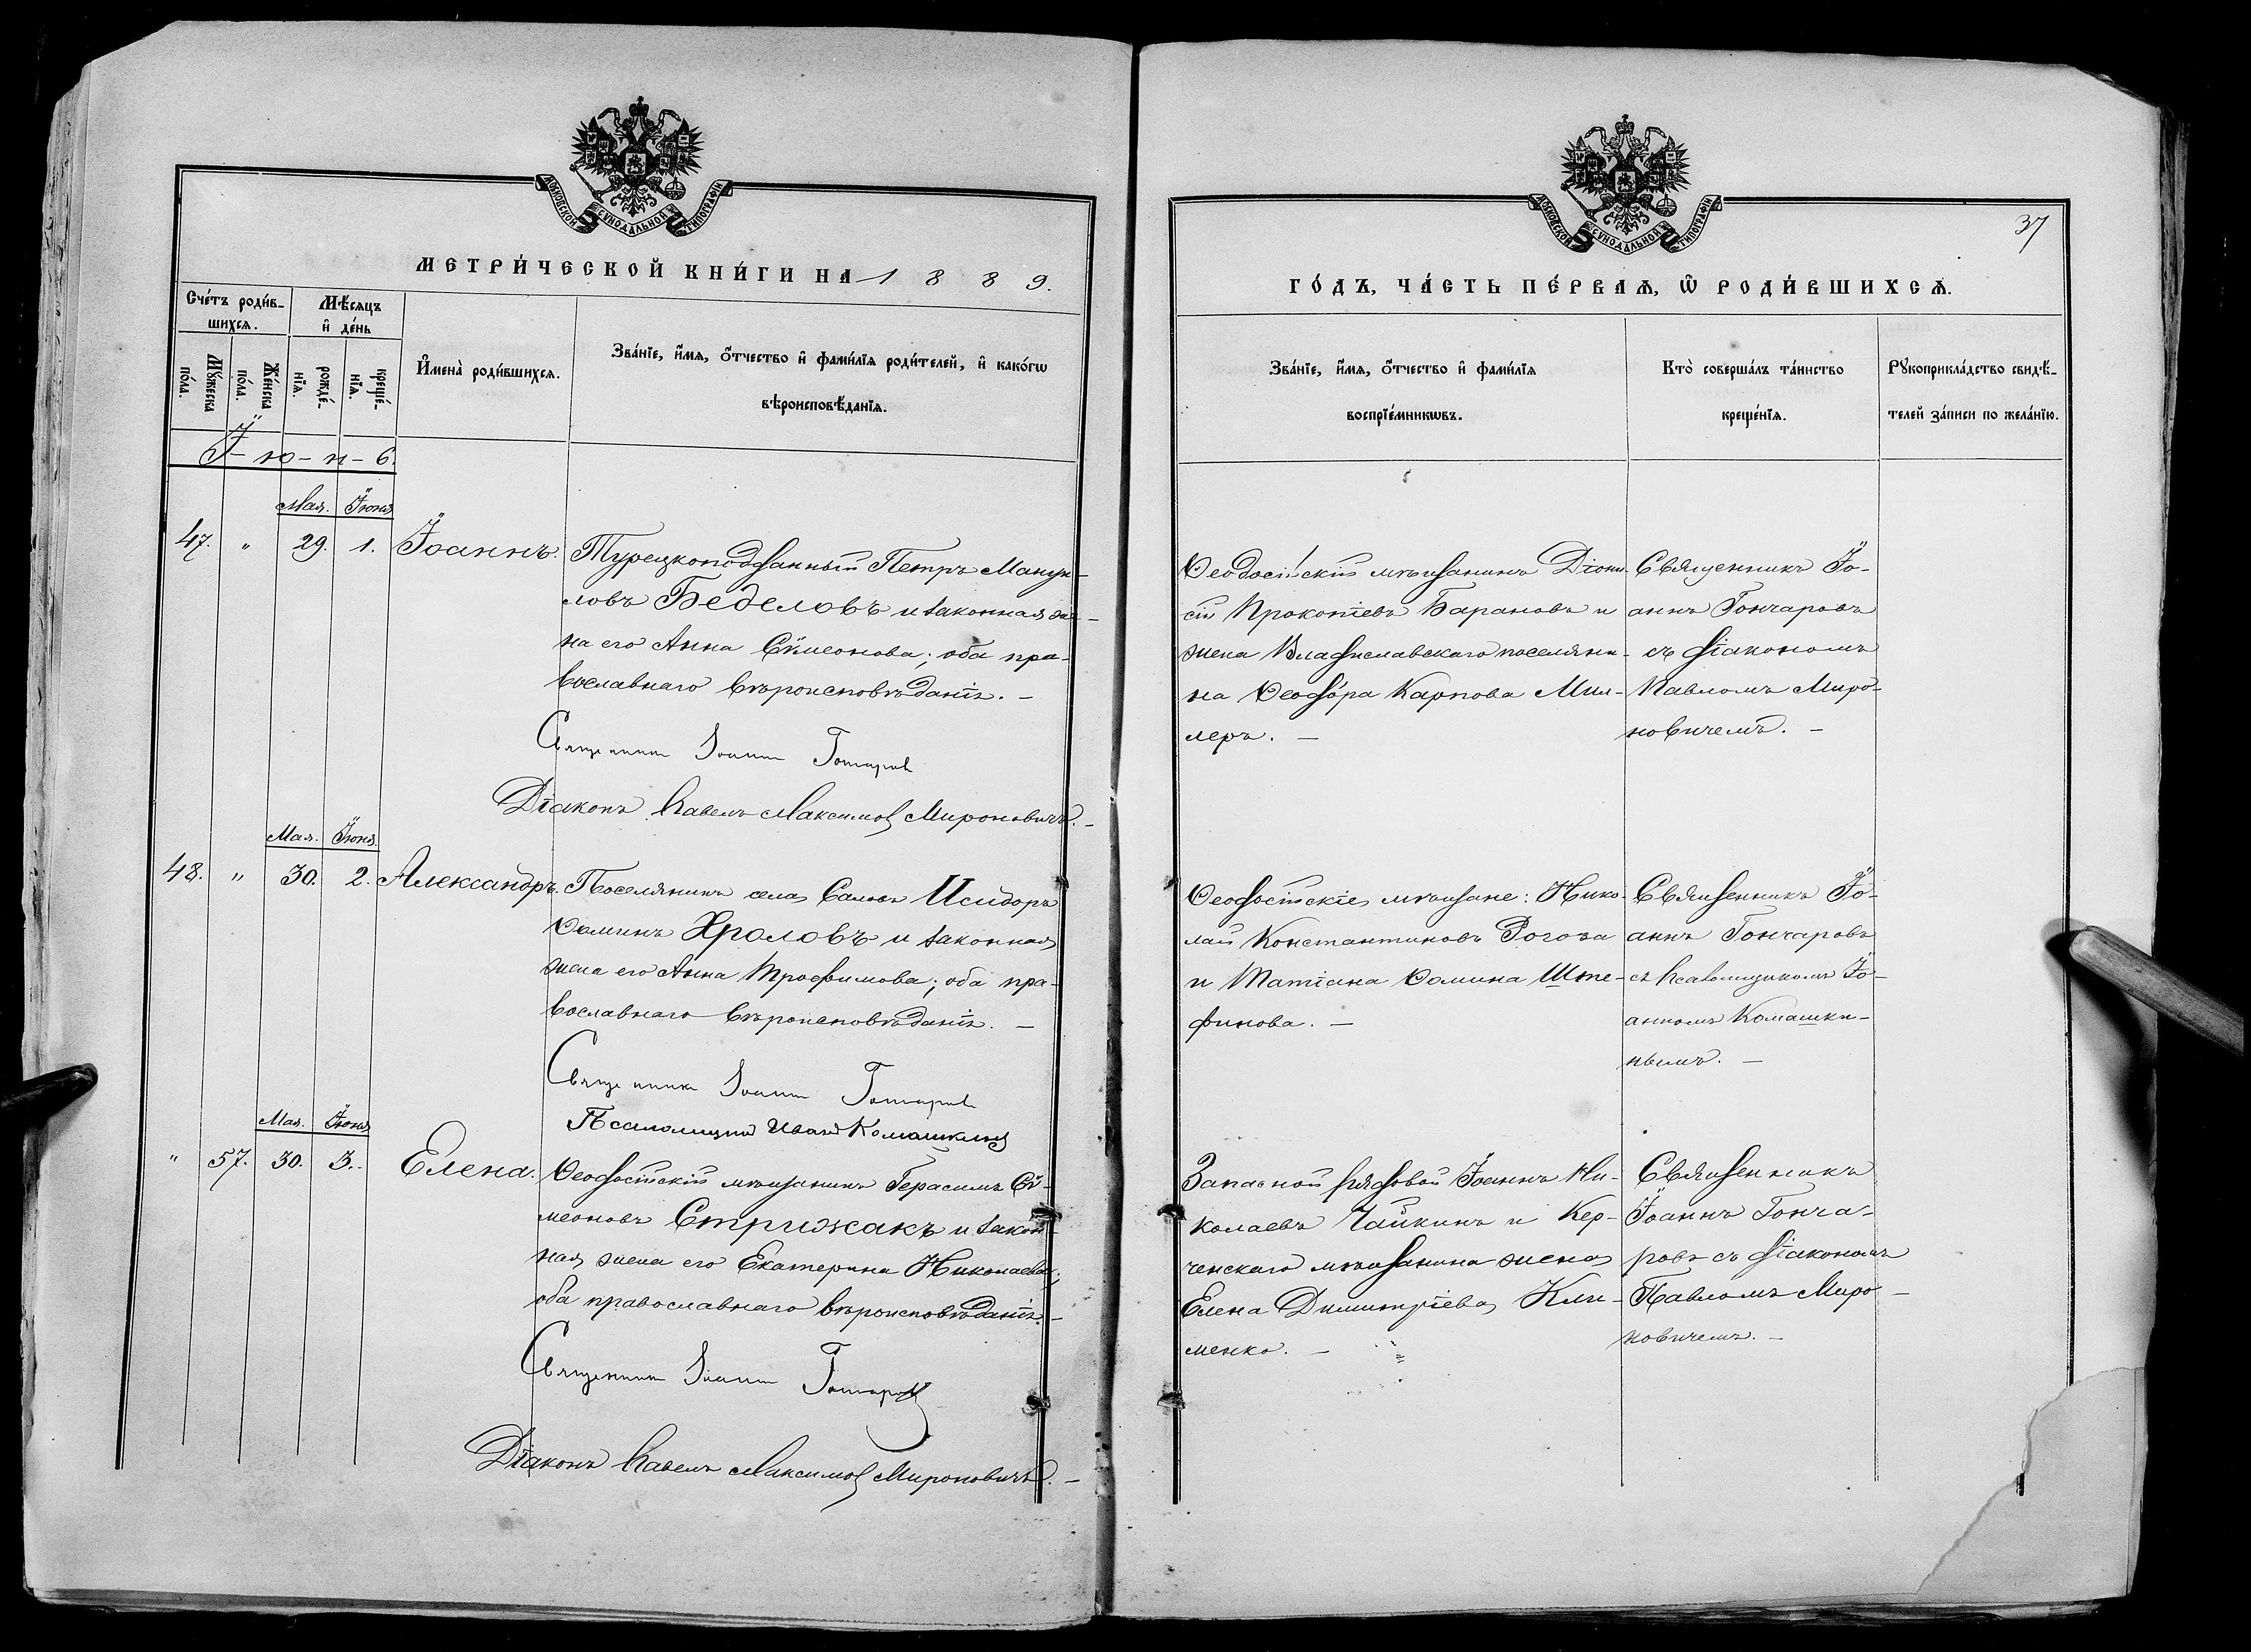 МОСКОВСКОЙ СѴНОДАЛЬНОЙ ТИПОГРАФІИ
МЕТРИ́ЧЕСКОЙ КНИ́ГИ НА 1889.
Сче́тъ роди́в-
шихсѧ.
Мѣ́сѧцъ
и҆ де́нь
Мꙋ́жеска
по́ла.
Же́нска
по́ла.
рожде́-
нїѧ.
креще́-
нїѧ.
И҆мена̀ роди́вшихсѧ.
Зва́нїе, и҆́мѧ, ѻ҆́тчество и҆ фами́лїѧ роди́телей, и҆ како́гѡ
вѣроисповѣ́данїѧ.
І-ю-н-ь.
Мая. Іюня
47. " 29. 1. Іоаннъ.
Турецкоподданный Петръ Мануи-
ловъ Беделовъ и законная же-
на его Анна Сѵмеонова; оба пра-
вославнаго вѣроисповѣданія. –
Священникъ Іоаннъ Гончаровъ
Діаконъ Павелъ Максимов Мироновичъ. –
Мая. Іюня.
48. " 30. 2. Александръ.
Поселянинъ села Салы Исидоръ
Ѳоминъ Хроловъ и законная
жена его Анна Трофимова; оба пра-
вославнаго вѣроисповѣданія. –
Священникъ Іоаннъ Гончаровъ
Псаломщикъ Иванъ Комашкинъ
Мая. Іюня
" 57. 30. 3. Елена.
Ѳеодосійскій мѣщанинъ Герасимъ Сѵ-
меоновъ Стрижакъ и закон-
ная жена его Екатерина Николаева;
оба православнаго вѣроисповѣданія. –
Священникъ Іоаннъ Гончаровъ
Діаконъ Павелъ Максимов Мироновичъ. –
МОСКОВСКОЙ СѴНОДАЛЬНОЙ ТИПОГРАФІИ
37
ГО́ДЪ, ЧА́СТЬ ПЕ́РВАѦ, Ѡ҆ РОДИ́ВШИХСѦ.
Зва́нїе, и҆́мѧ, ѻ҆́тчество и҆ фами́лїѧ
воспрїе́мникѡвъ.
Кто̀ соверша́лъ та́инство
креще́нїѧ.
Рꙋкоприкла́дство свидѣ́-
телей за́писи по жела́нїю.
Ѳеодосійскій мѣщанинъ Діони-
сій Прокопіевъ Барановъ и
жена Владиславскаго поселяни-
на Ѳеодора Карпова Мил-
леръ. –
Священникъ Іо-
аннъ Гончаровъ
съ діакономъ
Павломъ Миро-
новичемъ. –
Ѳеодосійскіе мѣщане: Нико-
лай Константиновъ Рогоза
и Татіана Ѳомина Ште-
финова. –
Священникъ Іо-
аннъ Гончаровъ
съ псаломщикомъ Іо-
анномъ Комашки-
нымъ. –
Запасной рядовой Іоаннъ Ни-
колаевъ Чайкинъ и Кер-
ченскаго мѣщанина жена
Елена Димитріева Кли-
менко. –
Священникъ
Іоаннъ Гонча-
ровъ съ діакономъ
Павломъ Миро-
новичемъ. –